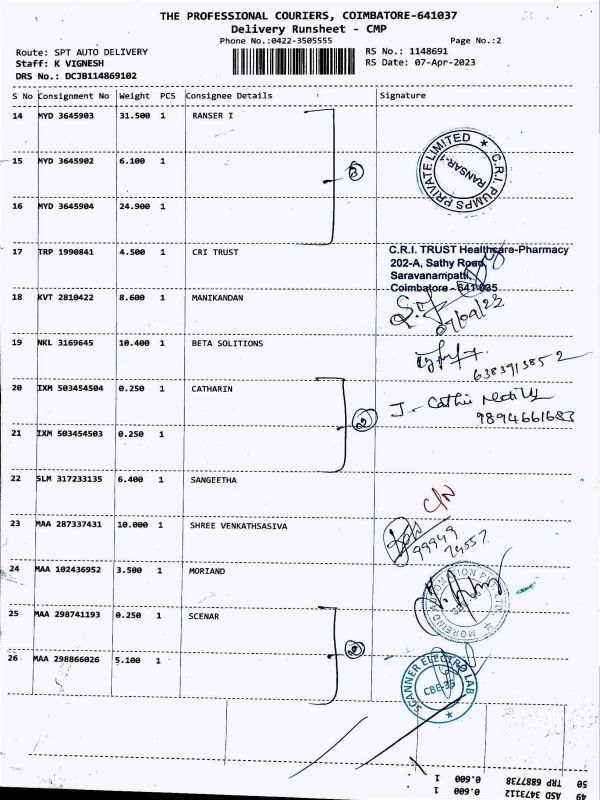 THE PROFESSIONAL COURIERS, COIMBATORE-641037
Delivery Runsheet - CMP
Phone No.:0422-3505555 Page No.:2
Route: SPT AUTO DELIVERY RS No.: 1148691
Staff: K VIGNESH RS Date: 07-Apr-2023
DRS No.: DCJB114869102
S No Consignment No Weight PCS Consignee Details Signature
14 MYD 3645903 31.500 1 RANSER I
C.R.I. PUMPS PRIVATE LIMITED ★
RANSAR-1
15 MYD 3645902 6.100 1
3
16 MYD 3645904 24.900 1
17 TRP 1990841 4.500 1 CRI TRUST
C.R.I. TRUST Healthcare-Pharmacy
202-A, Sathy Road,
Saravanampatti,
Coimbatore - 641 035
18 KVT 2810422 8.600 1 MANIKANDAN
07/04/23
19 NKL 3169645 10.400 1 BETA SOLITIONS
6383913852
20 IXM 503454504 0.250 1 CATHARIN
2
9894661683
21 IXM 503454503 0.250 1
22 SLM 317233135 6.400 1 SANGEETHA
C/N
23 MAA 287337431 10.000 1 SHREE VENKATHSASIVA
99949
74557
24 MAA 102436952 3.500 1 MORIAND
25 MAA 298741193 0.250 1 SCENAR
2
26 MAA 298866026 5.100 1
SCANNER ELECTRO LAB
CBE-35
★
50 TRP 6887738 0.600 1
49 ASD 3473112 0.600 1